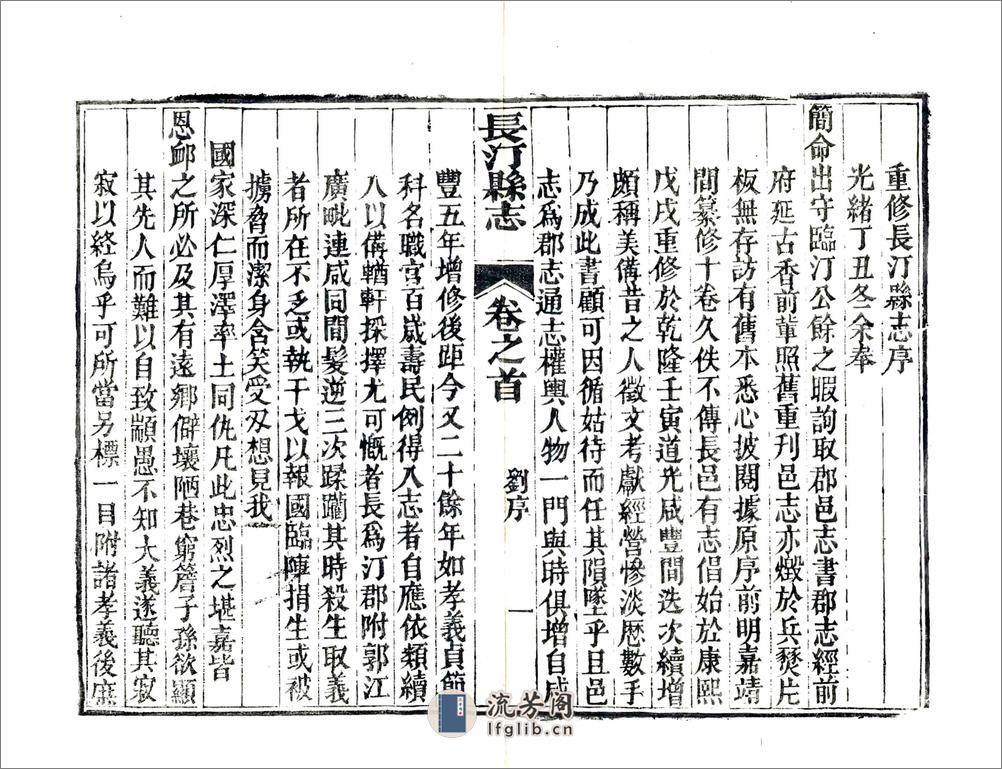 重修長汀縣志序
光緒丁丑冬余奉
簡命出守臨汀公餘之暇詢取郡邑志書郡志經前
府延古香前輩照舊重刊邑志亦燬於兵燹片
板無存訪有舊本悉心披閱據原序前明嘉靖
間纂修十卷久佚不傳長邑有志倡始於康熙
戊戌重修於乾隆壬寅道光咸豐間迭次續增
頗稱美備昔之人徵文考獻經營慘淡歷數手
乃成此書顧可因循姑待而任其隕墜乎且邑
志為郡志通志權輿人物一門與時俱增自咸
長汀縣志 卷之首 劉序 一
豐五年增修後距今又二十餘年如孝義貞節
科名職官百歲壽民例得入志者自應依類續
入以備輶軒採擇尤可慨者長為汀郡附郭江
廣毗連咸同間髮逆三次蹂躪其時殺生取義
者所在不乏或執干戈以報國臨陣捐生或被
擄脅而潔身含笑受刃想見我
國家深仁厚澤率土同仇凡此忠烈之堪嘉皆
恩卹之所必及其有遠鄉僻壤陋巷窮簷子孫欲顯
其先人而難以自致顓愚不知大義遂聽其寂
寂以終烏乎可所當另標一目附諸孝義後庶
流芳阁
lfglib.cn